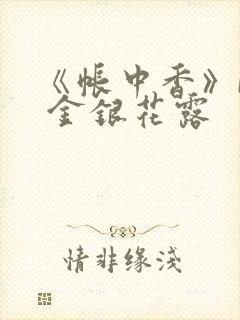 《帐中香》
金银花露
情非缘浅